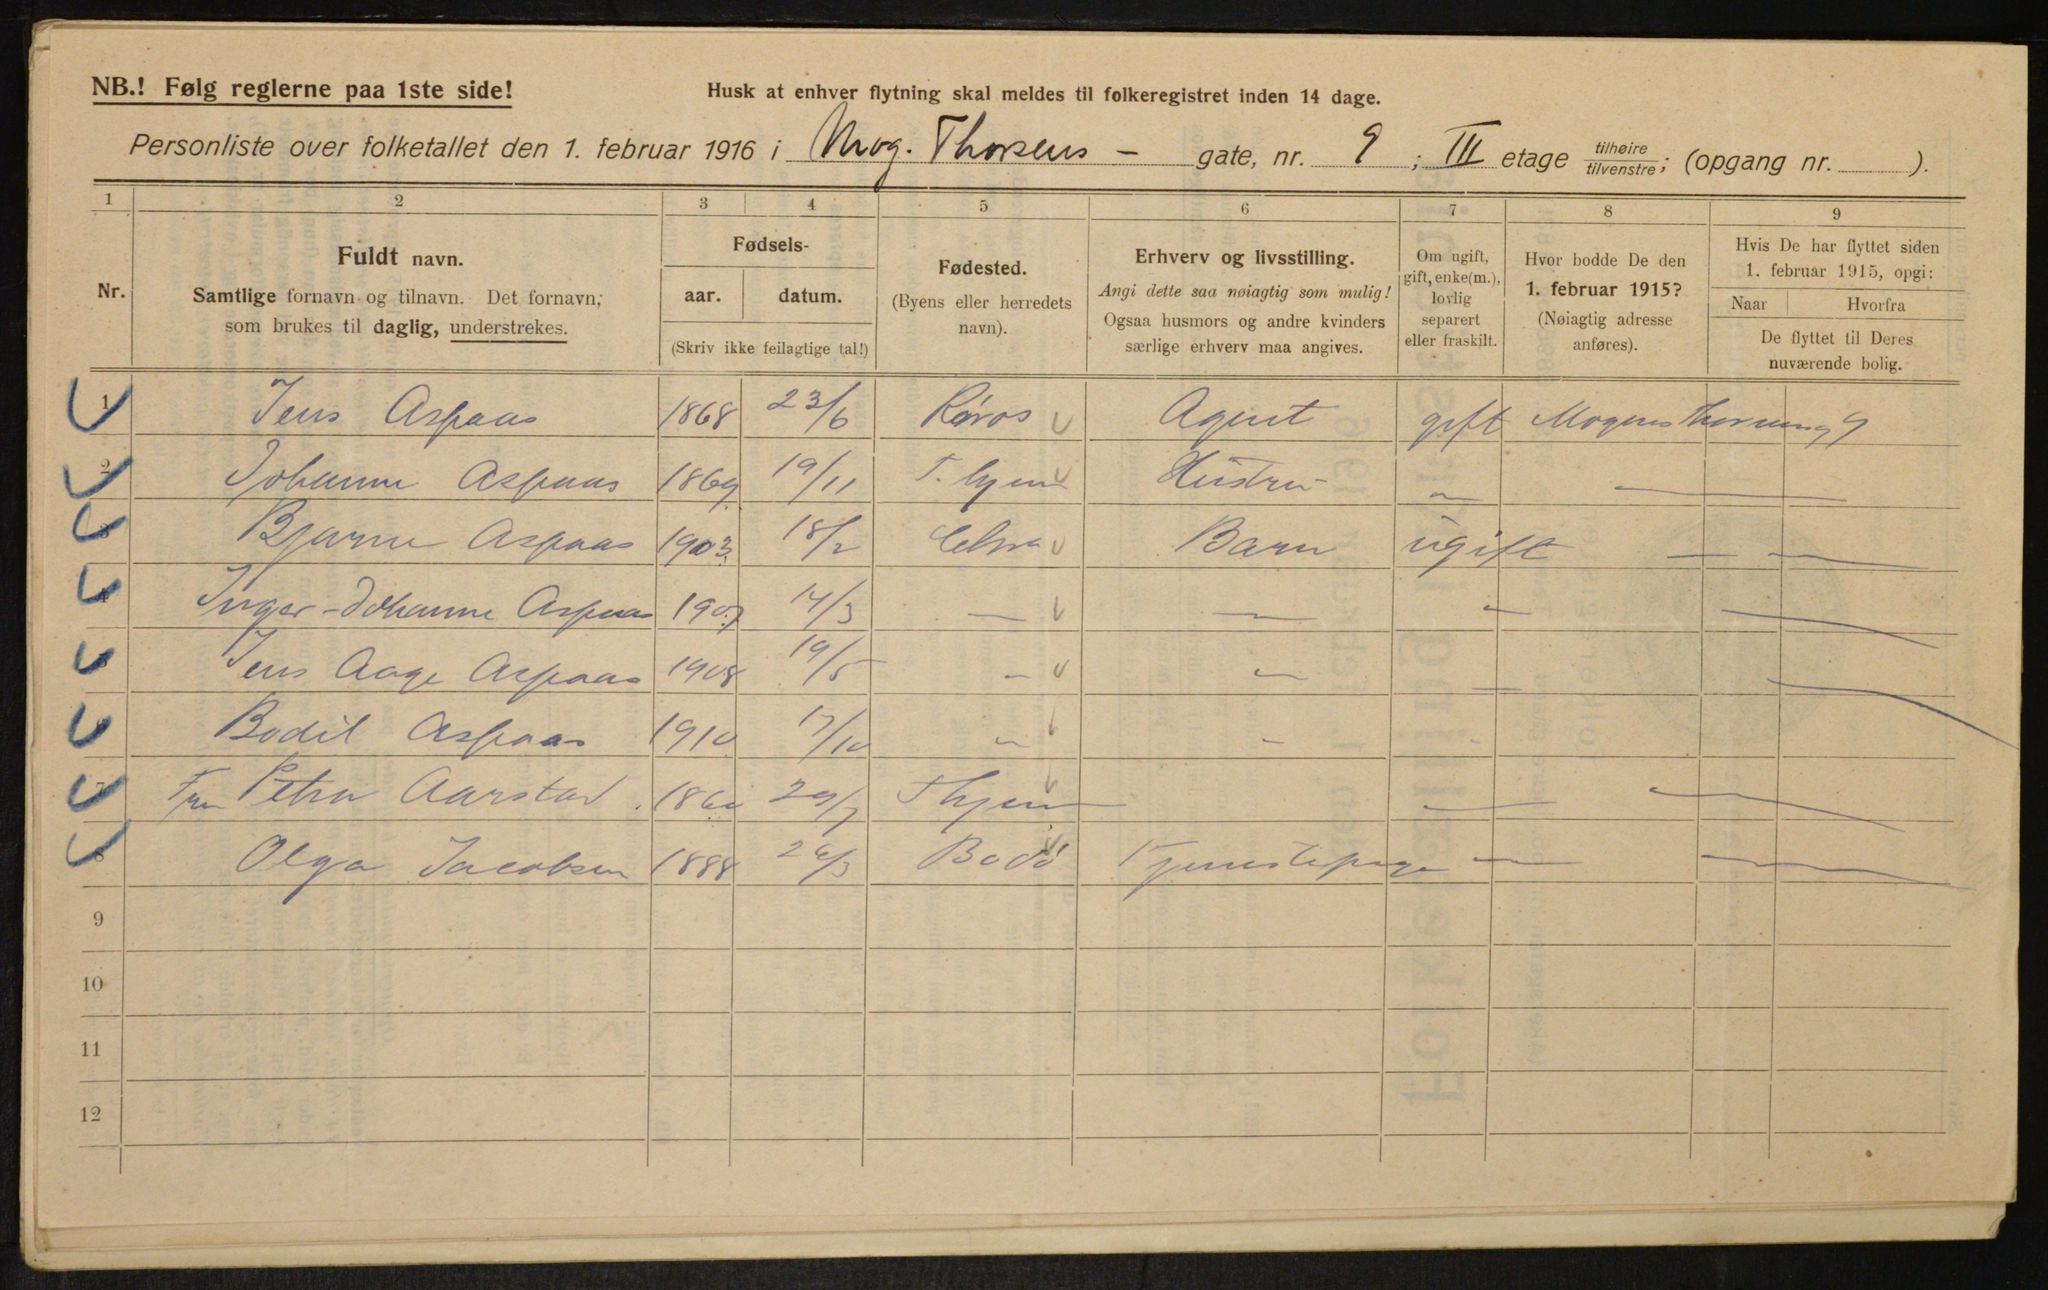 NB.! Følg reglerne paa 1ste side!
Husk at enhver flytning skal meldes til folkeregistret inden 14 dage.
Personliste over folketallet den 1. februar 1916 i Mog. Thorsens - gate, nr. 9 ; III etage tilhøire/tilvenstre; (opgang nr. ).
1 2 3 4 5 6 7 8 9
Nr.
Fuldt navn.
Samtlige fornavn og tilnavn. Det fornavn,
som brukes til daglig, understrekes.
Fødsels-
aar. datum.
(Skriv ikke feilagtige tal!)
Fødested.
(Byens eller herredets
navn).
Erhverv og livsstilling.
Angi dette saa nøiagtig som mulig!
Ogsaa husmors og andre kvinders
særlige erhverv maa angives.
Om ugift,
gift, enke(m.),
lovlig
separert
eller fraskilt.
Hvor bodde De den
1. februar 1915?
(Nøiagtig adresse
anføres).
Hvis De har flyttet siden
1. februar 1915, opgi:
Naar Hvorfra
De flyttet til Deres
nuværende bolig.
1 Jens Aspaas 1868 23/6 Røros Agent gift Mogens 9
2 Johanne Aspaas 1869 19/11 T.hjem Hustru
3 Bjarne Aspaas 1903 18/2 Barn ugift
4 Inger-Johanne Aspaas 1907 14/3
5 Jens Aage Aspaas 1908 19/5
6 Bodil Aspaas 1910 17/10
7 Fru Petra Aarstad 1860 29/7 Thjem
8 Olga Jacobsen 1888 26/3 Bodø Tjenestepige
9
10
11
12